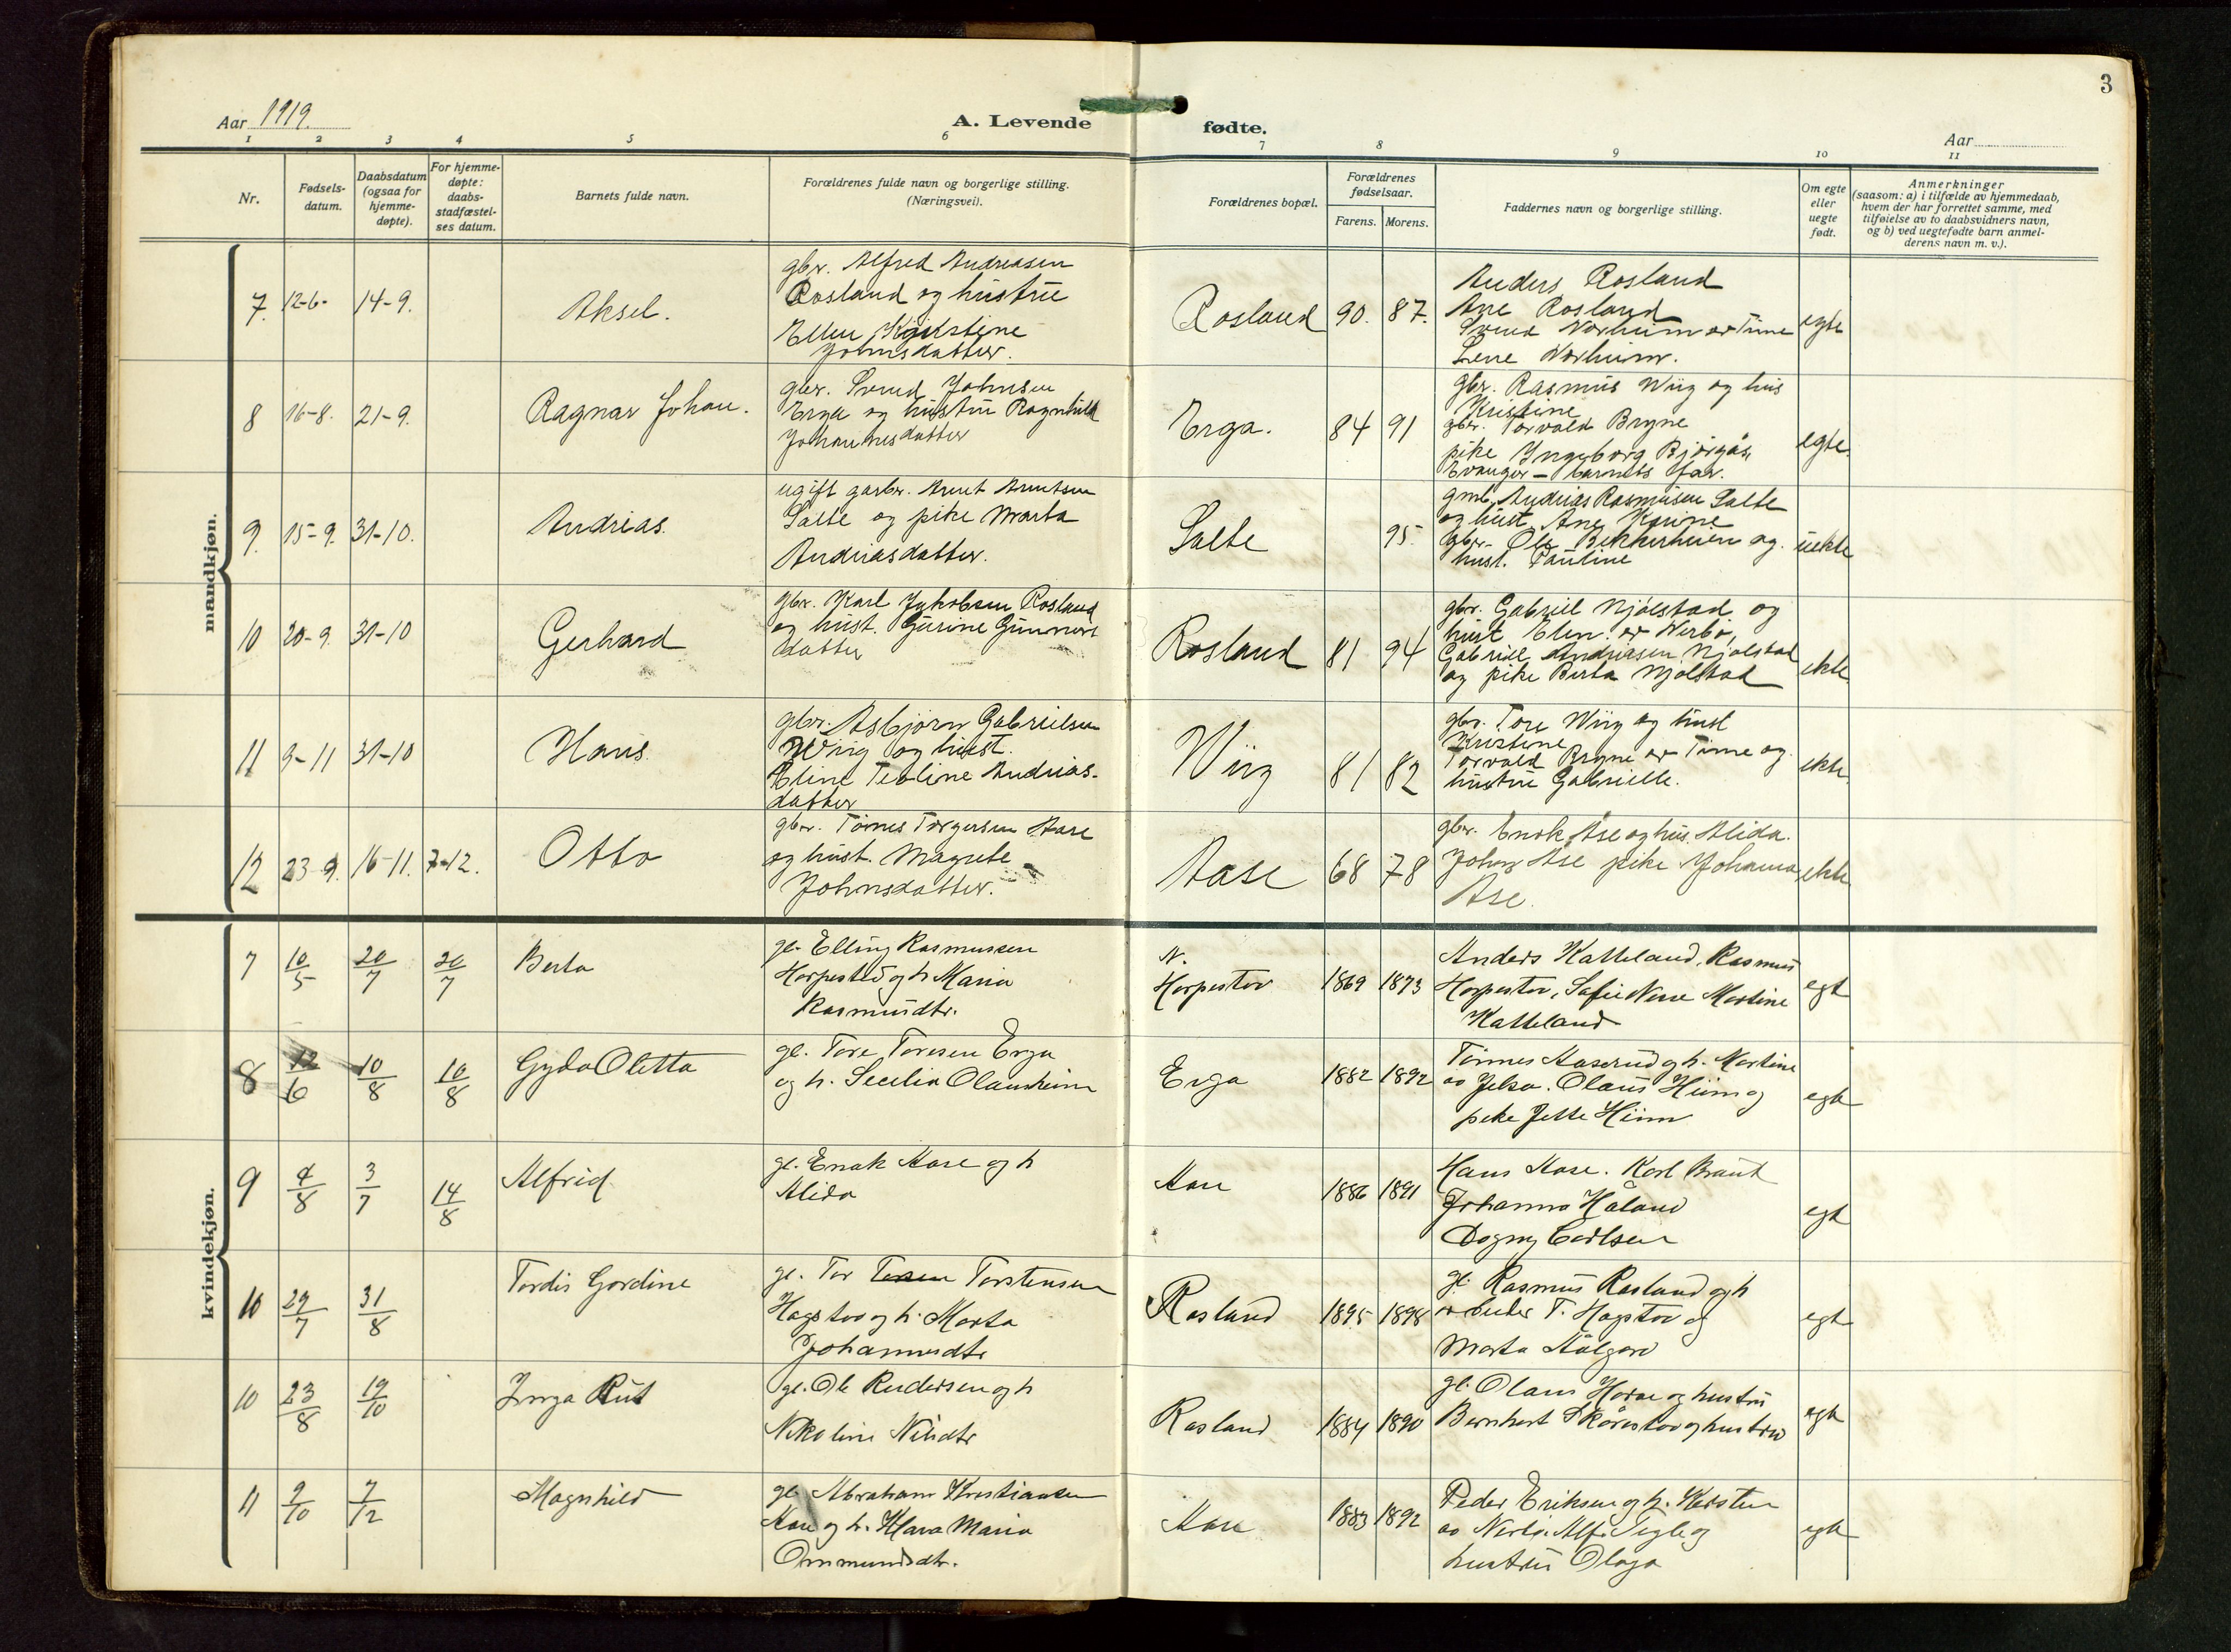 3
Aar 1919.
A. Levende fødte.
Aar
1 2 3 4 5 6 7 8 9 10 11
Nr.
Fødsels-
datum.
Daabsdatum
(ogsaa for
hjemme-
døpte).
For hjemme-
døpte:
daabs-
stadfæstel-
ses datum.
Barnets fulde navn.
Forældrenes fulde navn og borgerlige stilling.
(Næringsvei).
Forældrenes bopæl.
Forældrenes
fødselsaar.
Farens. Morens.
Faddernes navn og borgerlige stilling.
Om egte
eller
uegte
født.
Anmerkninger
(saasom: a) i tilfælde av hjemmedaab,
hvem der har forrettet samme, med
tilføielse av to daabsvidners navn,
og b) ved uegtefødte barn anmel-
derens navn m. v.).
mandkjøn.
7. 12-6- 14-9.
Aksel.
gbr. Alfred Andreasen
Rosland og hustru
Ellen
Johnsdatter.
Rosland 90. 87.
Anders Rosland
Ane Rosland
Svend Norheim av Time
Lene Norheim.
egte
8 16-8. 21-9.
Ragnar Johan.
gbr. Svend Johnsen
Erga og hustru Ragnhild
Johannesdatter
Erga. 84 91
gbr. Rasmus Wiig og hus
Kristine
gbr. Torvald Bryne
pike Ingeborg Bjørgås,
Evanger - barnets far.
egte.
9. 15-9. 31-10.
Andreas.
ugift garbr. Arnt Arntsen
Salte og pike Marta
Andreasdatter.
Salte 95.
gmb. Andreas Rasmusen Salte
og hust. Ane Karine
gbr. Ole og
hust. Pauline
uekte
10 20-9. 31-10
Gerhard
gbr. Karl Jakobsen Rosland
og hust. Gurine Gunnars
datter
Rosland 81 94
gbr. Gabriel Njølstad og
hust Elen. av Nerbø,
Gabriel Andreasen Njølstad
og pike Berta Njølstad
ekte.
11 9-11 31-10
Hans.
gbr. Asbjørn Gabrielsen
Wiig og hust.
Eline Teoline Andreas-
datter
Wiig 81 82
gbr. Tore Wiig og hust
Kristine
Torvald Bryne av Time og
hustru Gabrielle.
ekte.
12 23-9. 16-11. 7-12.
Otto
gbr. Tønnes Torgersen Aase
og hust. Magrete
Johnsdatter.
Aase 68 78
gbr. Enok Åse og hus. Alida.
John Åse pike Johanna
Åse.
ekte
kvindekjøn.
7 10/5 20/7 20/7
Berta
gl. Elling Rasmussen
Horpestad og h Maria
Rasmusdtr.
N.
Horpestad 1869 1873
Anders Katteland, Rasmus
Horpestad, Martine
Katteland
egt
8 12/6 10/8 10/8
Gyda Oletta
gl. Tore Toresen Erga
og h. Secelia
Erga 1882 1892
Tønnes og h. Martine
av Jelsa. Olaus Hiim og
pike Jette Hiim
egte
9 4/8 3/7 14/8
Alfrid
gl. Enok Aase og h
Alida
Aase 1886 1891
Hans Aase. Karl Braut
Johanna Håland
Dagny Carlsen
egt
10 29/7 31/8
Tordis Gordine
gl. Tor Torstensen
Hagstad og h. Marta
Johannesdtr
Rosland 1895 1898
gl. Rasmus Rosland og h
T. Hagstad og
Marta Ålgård
egt
10 23/8 19/10
Inga Rut
gl. Ole Reidersen og h
Nikoline Nilsdtr
Rosland 1884 1890
gl. Olaus Horne og hustru
Bernhart og hustru
egte
11 9/10 7/12
Magnhild
gl. Abraham Kristiansen
Aase og h. Klara Maria
Ommundsdtr.
Aase 1883 1892
Peder Eriksen og h. Kirsten
av Nerbø. Alf. Tegle og
hustru Olaga
egte